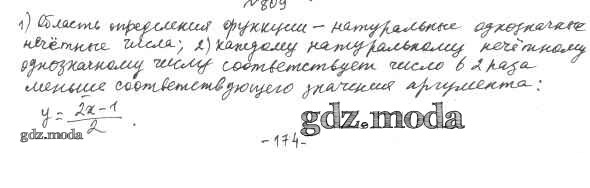 №809
1) Область определения функции – натуральные однозначные
нечётные числа; 2) каждому натуральному нечётному
однозначному числу соответствует число в 2 раза
меньше соответствующего значения аргумента:
y = (2x-1)/2 .
gdz.moda
gdz.moda
-174-